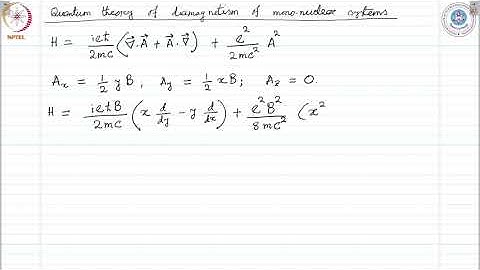 NPTEL
Quantum theory of diamagnetism of mono-nuclear systems
H = ieħ/2mc (∇⃗·A⃗ + A⃗·∇⃗) + e²/2mc² A²
Ax = 1/2 yB, Ay = 1/2 xB; Az = 0.
H = ieħB/2mc (x d/dy - y d/dx) + e²B²/8mc² (x²